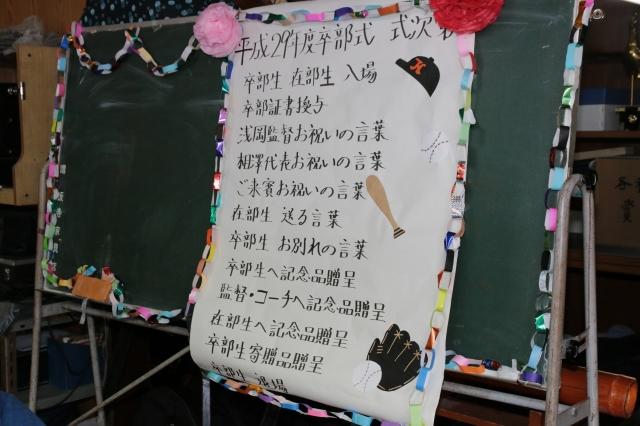 平成29年度卒部式 式次第
卒部生 在部生 入場
卒部証書授与
浅岡監督お祝いの言葉
相澤代表お祝いの言葉
ご来賓お祝いの言葉
在部生 送る言葉
卒部生 お別れの言葉
卒部生へ記念品贈呈
監督・コーチへ記念品贈呈
在部生へ記念品贈呈
卒部生寄贈品贈呈
卒部生 退場